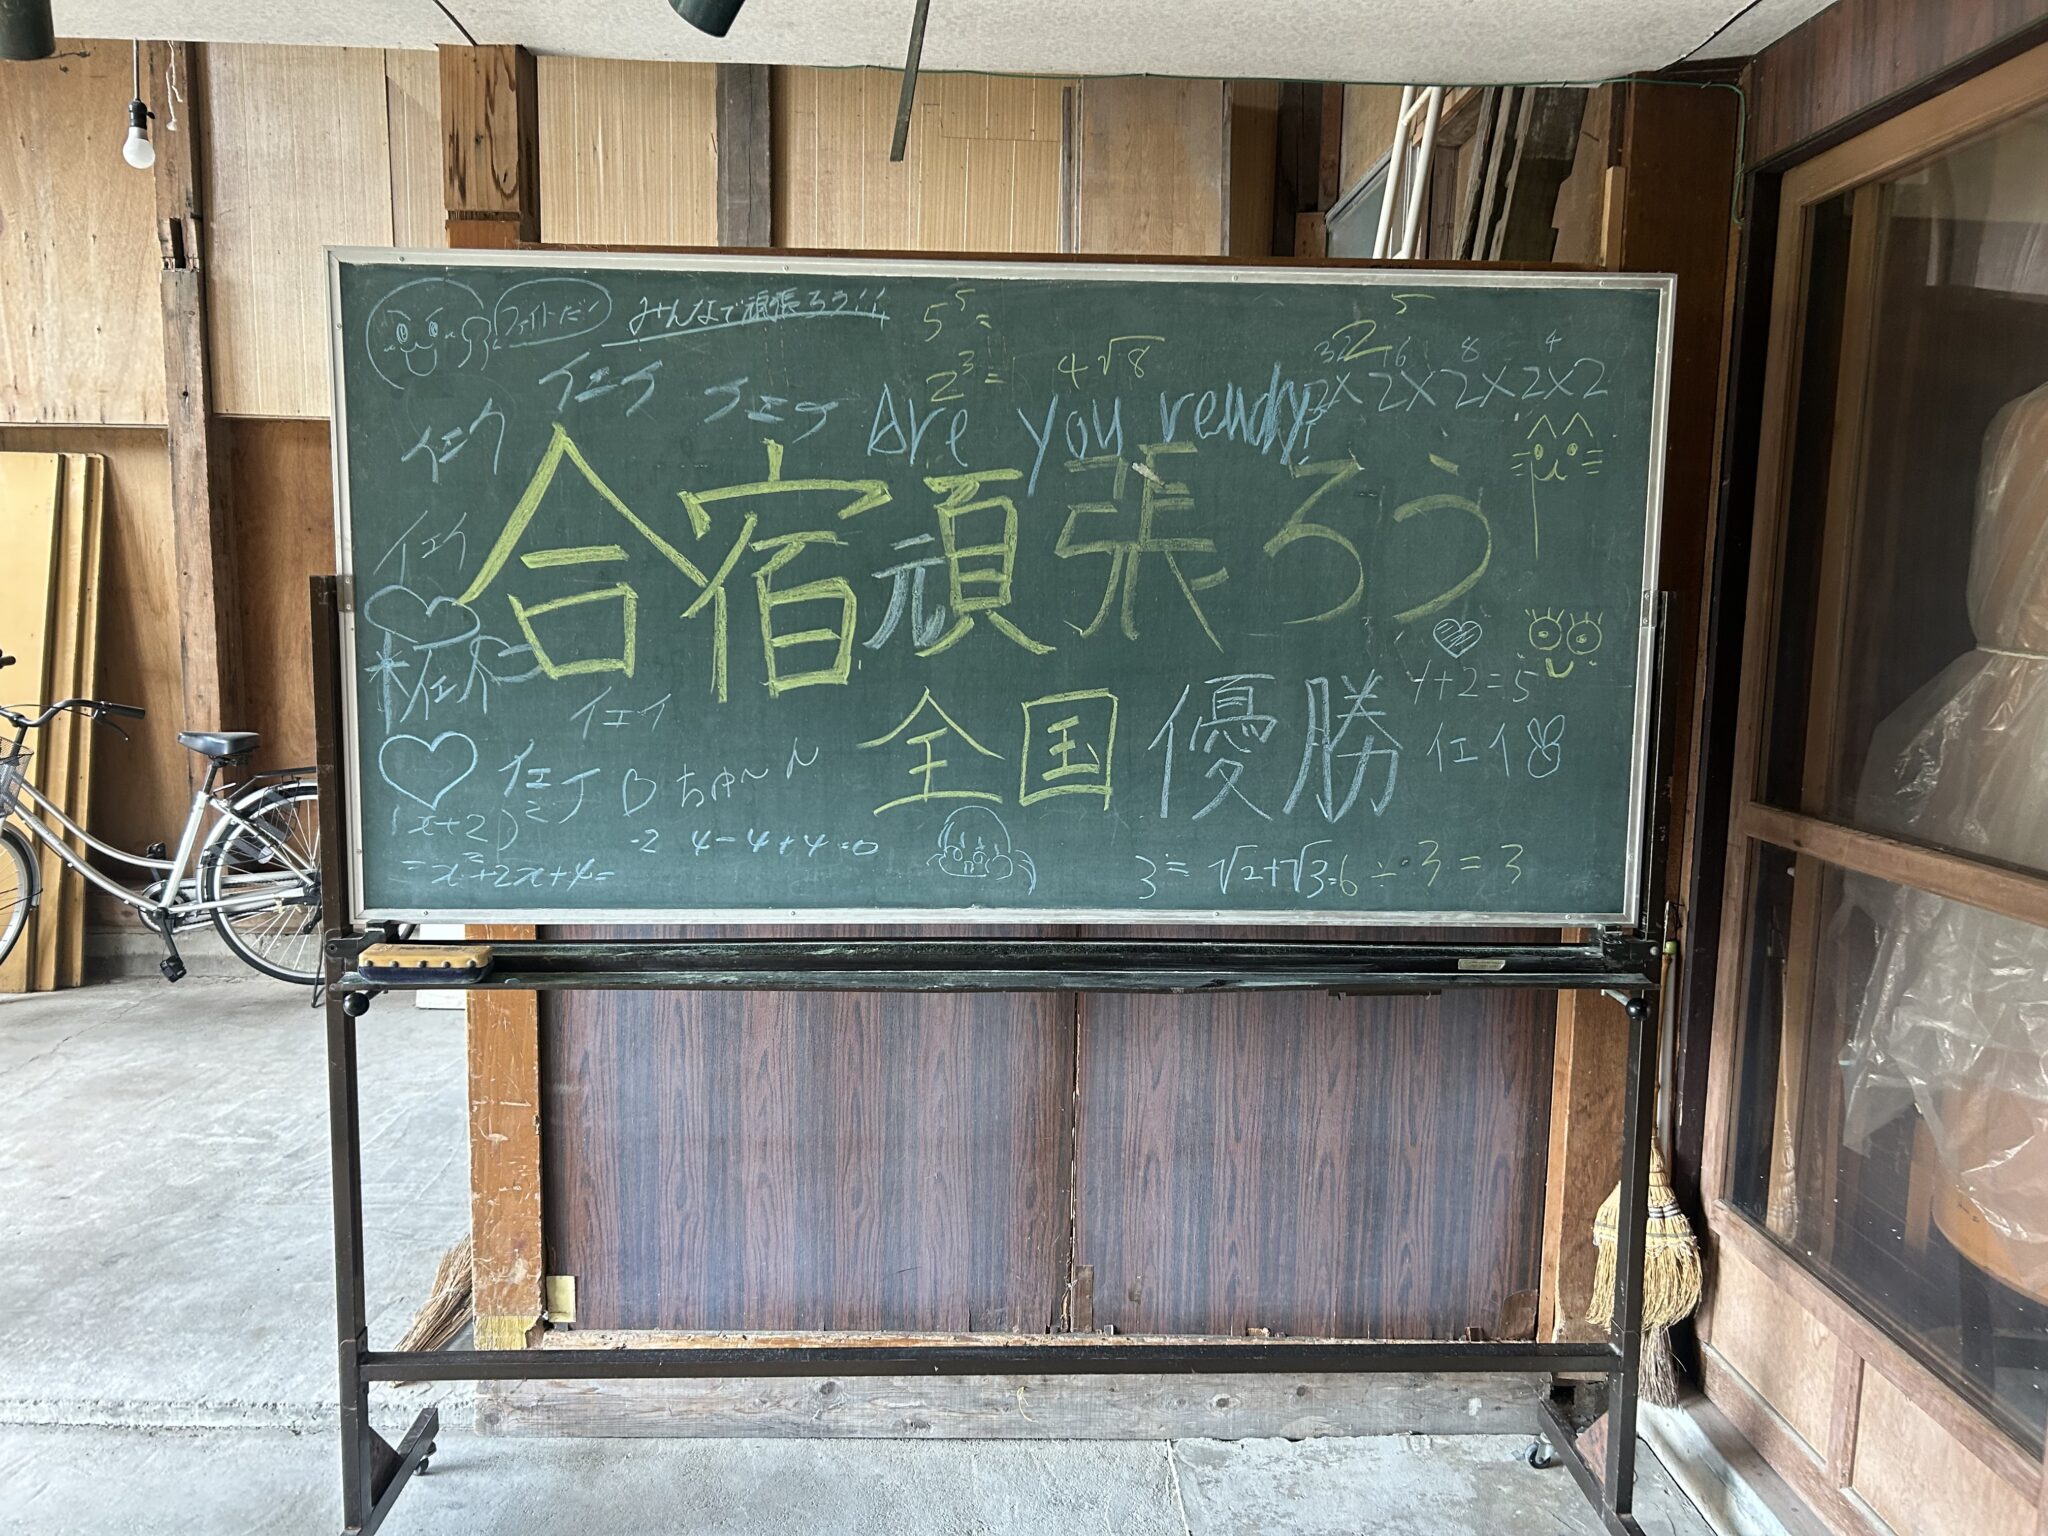 ファイトだ!
みんなで頑張ろう!!
5⁵=
2³=
4√8
2⁵
32 16 8 4
2×2×2×2×2
イエイ
イエイ
イエイ
Are you ready?
合宿頑張ろう
イエイ
イエイ
全国優勝
1+2=5
イエイ
イエイ
ちゅ〜ん
(x+2)²
=x²+2x+4=
-2 4-4+4=0
3= √2+√3=6÷3=3